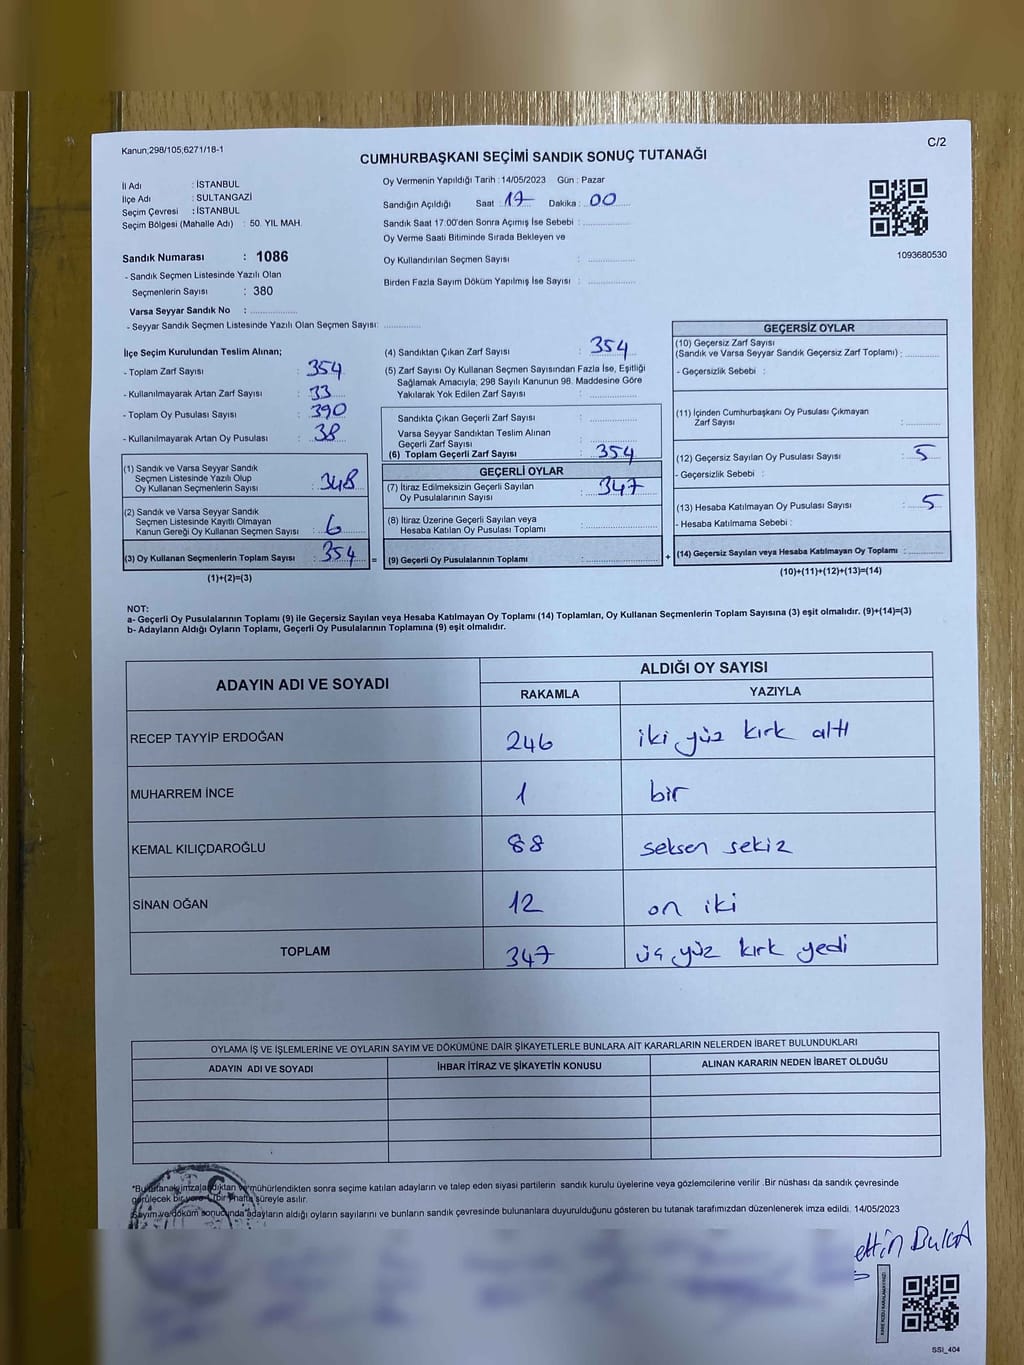 Kanun;298/105;6271/18-1
C/2
CUMHURBAŞKANI SEÇİMİ SANDIK SONUÇ TUTANAĞI
İl Adı : İSTANBUL
İlçe Adı : SULTANGAZİ
Seçim Çevresi : İSTANBUL
Seçim Bölgesi (Mahalle Adı) : 50. YIL MAH.
Sandık Numarası : 1086
- Sandık Seçmen Listesinde Yazılı Olan
Seçmenlerin Sayısı : 380
Varsa Seyyar Sandık No :
- Seyyar Sandık Seçmen Listesinde Yazılı Olan Seçmen Sayısı:
Oy Vermenin Yapıldığı Tarih : 14/05/2023 Gün : Pazar
Sandığın Açıldığı Saat : 17 Dakika : 00
Sandık Saat 17:00'den Sonra Açımış İse Sebebi :
Oy Verme Saati Bitiminde Sırada Bekleyen ve
Oy Kullandırılan Seçmen Sayısı :
Birden Fazla Sayım Döküm Yapılmış İse Sayısı :
1093680530
İlçe Seçim Kurulundan Teslim Alınan;
- Toplam Zarf Sayısı : 354
- Kullanılmayarak Artan Zarf Sayısı : 33
- Toplam Oy Pusulası Sayısı : 390
- Kullanılmayarak Artan Oy Pusulası : 38
(1) Sandık ve Varsa Seyyar Sandık
Seçmen Listesinde Yazılı Olup
Oy Kullanan Seçmenlerin Sayısı : 348
(2) Sandık ve Varsa Seyyar Sandık
Seçmen Listesinde Kayıtlı Olmayan
Kanun Gereği Oy Kullanan Seçmen Sayısı : 6
(3) Oy Kullanan Seçmenlerin Toplam Sayısı : 354 =
(1)+(2)=(3)
(4) Sandıktan Çıkan Zarf Sayısı : 354
(5) Zarf Sayısı Oy Kullanan Seçmen Sayısından Fazla İse, Eşitliği
Sağlamak Amacıyla; 298 Sayılı Kanunun 98. Maddesine Göre
Yakılarak Yok Edilen Zarf Sayısı :
Sandıkta Çıkan Geçerli Zarf Sayısı :
Varsa Seyyar Sandıktan Teslim Alınan
Geçerli Zarf Sayısı :
(6) Toplam Geçerli Zarf Sayısı : 354
GEÇERLİ OYLAR
(7) İtiraz Edilmeksizin Geçerli Sayılan
Oy Pusulalarının Sayısı : 347
(8) İtiraz Üzerine Geçerli Sayılan veya
Hesaba Katılan Oy Pusulası Toplamı :
(9) Geçerli Oy Pusulalarının Toplamı : +
GEÇERSİZ OYLAR
(10) Geçersiz Zarf Sayısı
(Sandık ve Varsa Seyyar Sandık Geçersiz Zarf Toplamı) :
- Geçersizlik Sebebi :
(11) İçinden Cumhurbaşkanı Oy Pusulası Çıkmayan
Zarf Sayısı :
(12) Geçersiz Sayılan Oy Pusulası Sayısı : 5
- Geçersizlik Sebebi :
(13) Hesaba Katılmayan Oy Pusulası Sayısı : 5
- Hesaba Katılmama Sebebi :
(14) Geçersiz Sayılan veya Hesaba Katılmayan Oy Toplamı :
(10)+(11)+(12)+(13)=(14)
NOT:
a- Geçerli Oy Pusulalarının Toplamı (9) ile Geçersiz Sayılan veya Hesaba Katılmayan Oy Toplamı (14) Toplamları, Oy Kullanan Seçmenlerin Toplam Sayısına (3) eşit olmalıdır. (9)+(14)=(3)
b- Adayların Aldığı Oyların Toplamı, Geçerli Oy Pusulalarının Toplamına (9) eşit olmalıdır.
ADAYIN ADI VE SOYADI
ALDIĞI OY SAYISI
RAKAMLA YAZIYLA
RECEP TAYYİP ERDOĞAN 246 iki yüz kırk altı
MUHARREM İNCE 1 bir
KEMAL KILIÇDAROĞLU 88 seksen sekiz
SİNAN OĞAN 12 on iki
TOPLAM 347 üç yüz kırk yedi
OYLAMA İŞ VE İŞLEMLERİNE VE OYLARIN SAYIM VE DÖKÜMÜNE DAİR ŞİKAYETLERLE BUNLARA AİT KARARLARIN NELERDEN İBARET BULUNDUKLARI
ADAYIN ADI VE SOYADI İHBAR İTİRAZ VE ŞİKAYETİN KONUSU ALINAN KARARIN NEDEN İBARET OLDUĞU
sonra seçime katılan adayların ve talep eden siyasi partilerin sandık kurulu üyelerine veya gözlemcilerine verilir .Bir nüshası da sandık çevresinde
süreyle asılır.
adayların aldığı oyların sayılarını ve bunların sandık çevresinde bulunanlara duyurulduğunu gösteren bu tutanak tarafımızdan düzenlenerek imza edildi. 14/05/2023
SSI_404